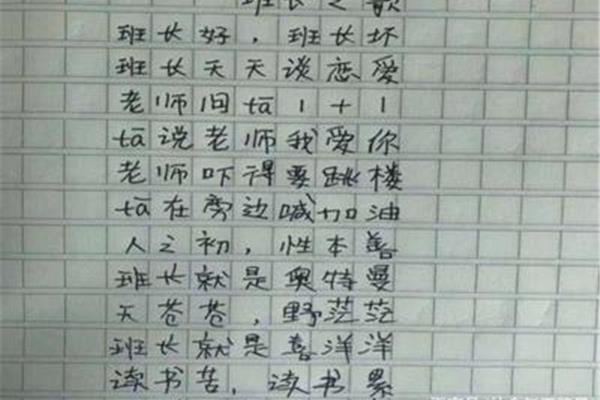 班长之歌
班长好，班长坏
班长天天谈恋爱
老师问tā 1+1
tā说老师我爱你
老师吓得要跳楼
tā在旁边喊加油
人之初，性本善
班长就是奥特曼
天苍苍，野茫茫
班长就是喜洋洋
读书苦，读书累